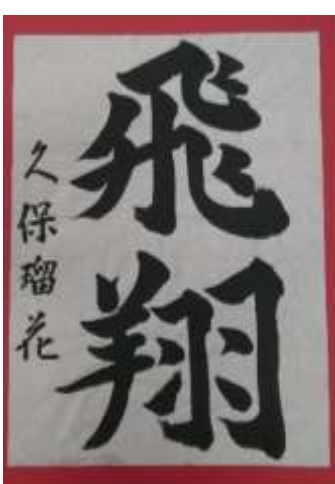 飛翔
久保瑠花